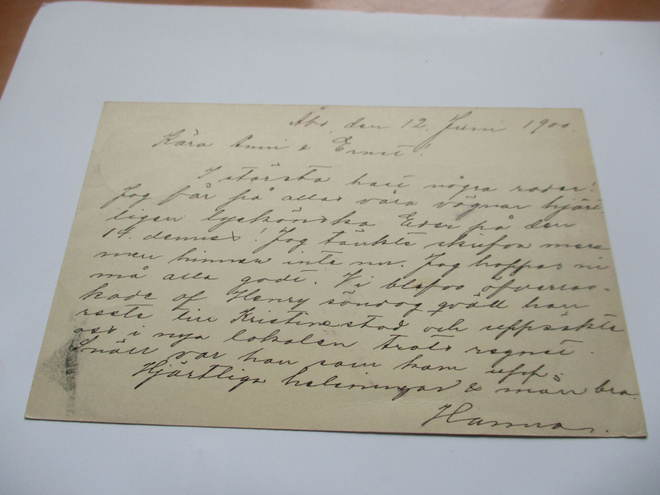 Åbo, den 12. Juni 1900.
Kära Anni & Ernst!
I största hast några rader!
Jag får på allas våra vägnar hjärt-
ligen lyckönska Eder på den
14 dennes! Jag tänkte skrifva mera
men hinner inte nu. Jag hoppas ni
må alla godt. Vi blefvo öfverras-
kade af Henry söndag qväll han
reste till Kristinestad och uppsökte
oss i nya lokalen trots regnet.
Snällt var han som kom upp.
Hjärtliga helsningar & mån bra.
Hanna.